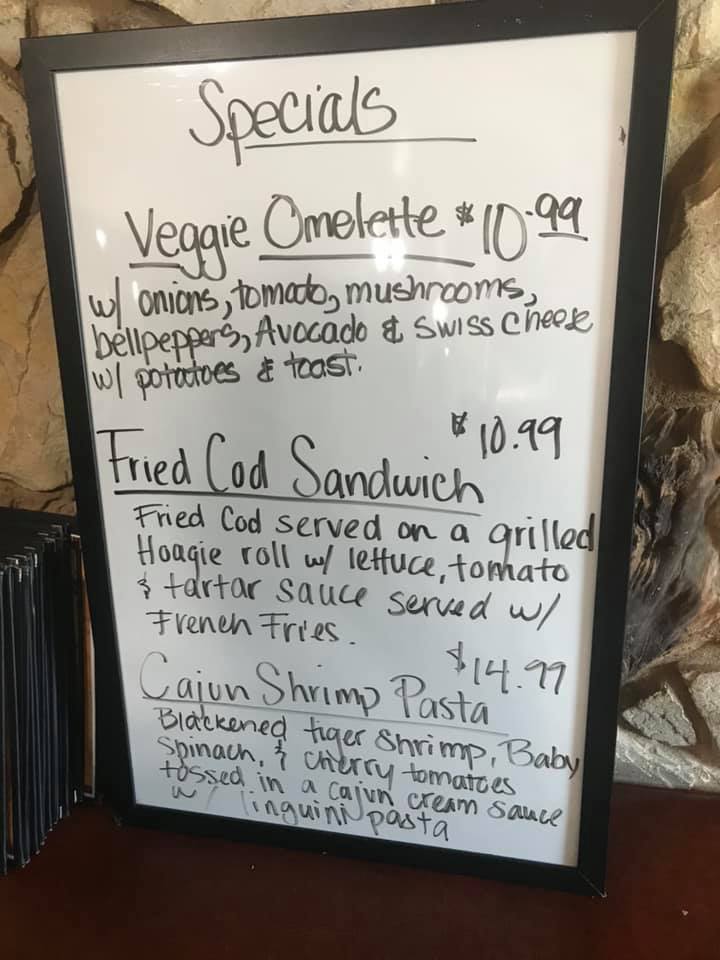 Specials
Veggie Omelette $10.99
w/ onions, tomato, mushrooms,
bellpeppers, Avocado & Swiss Cheese
w/ potatoes & toast.
$10.99
Fried Cod Sandwich
Fried Cod served on a grilled
Hoagie roll w/ lettuce, tomato
& tartar sauce served w/
French Fries.
$14.99
Cajun Shrimp Pasta
Blackened tiger Shrimp, Baby
Spinach, & cherry tomatoes
tossed in a cajun cream sauce
w/ linguini pasta